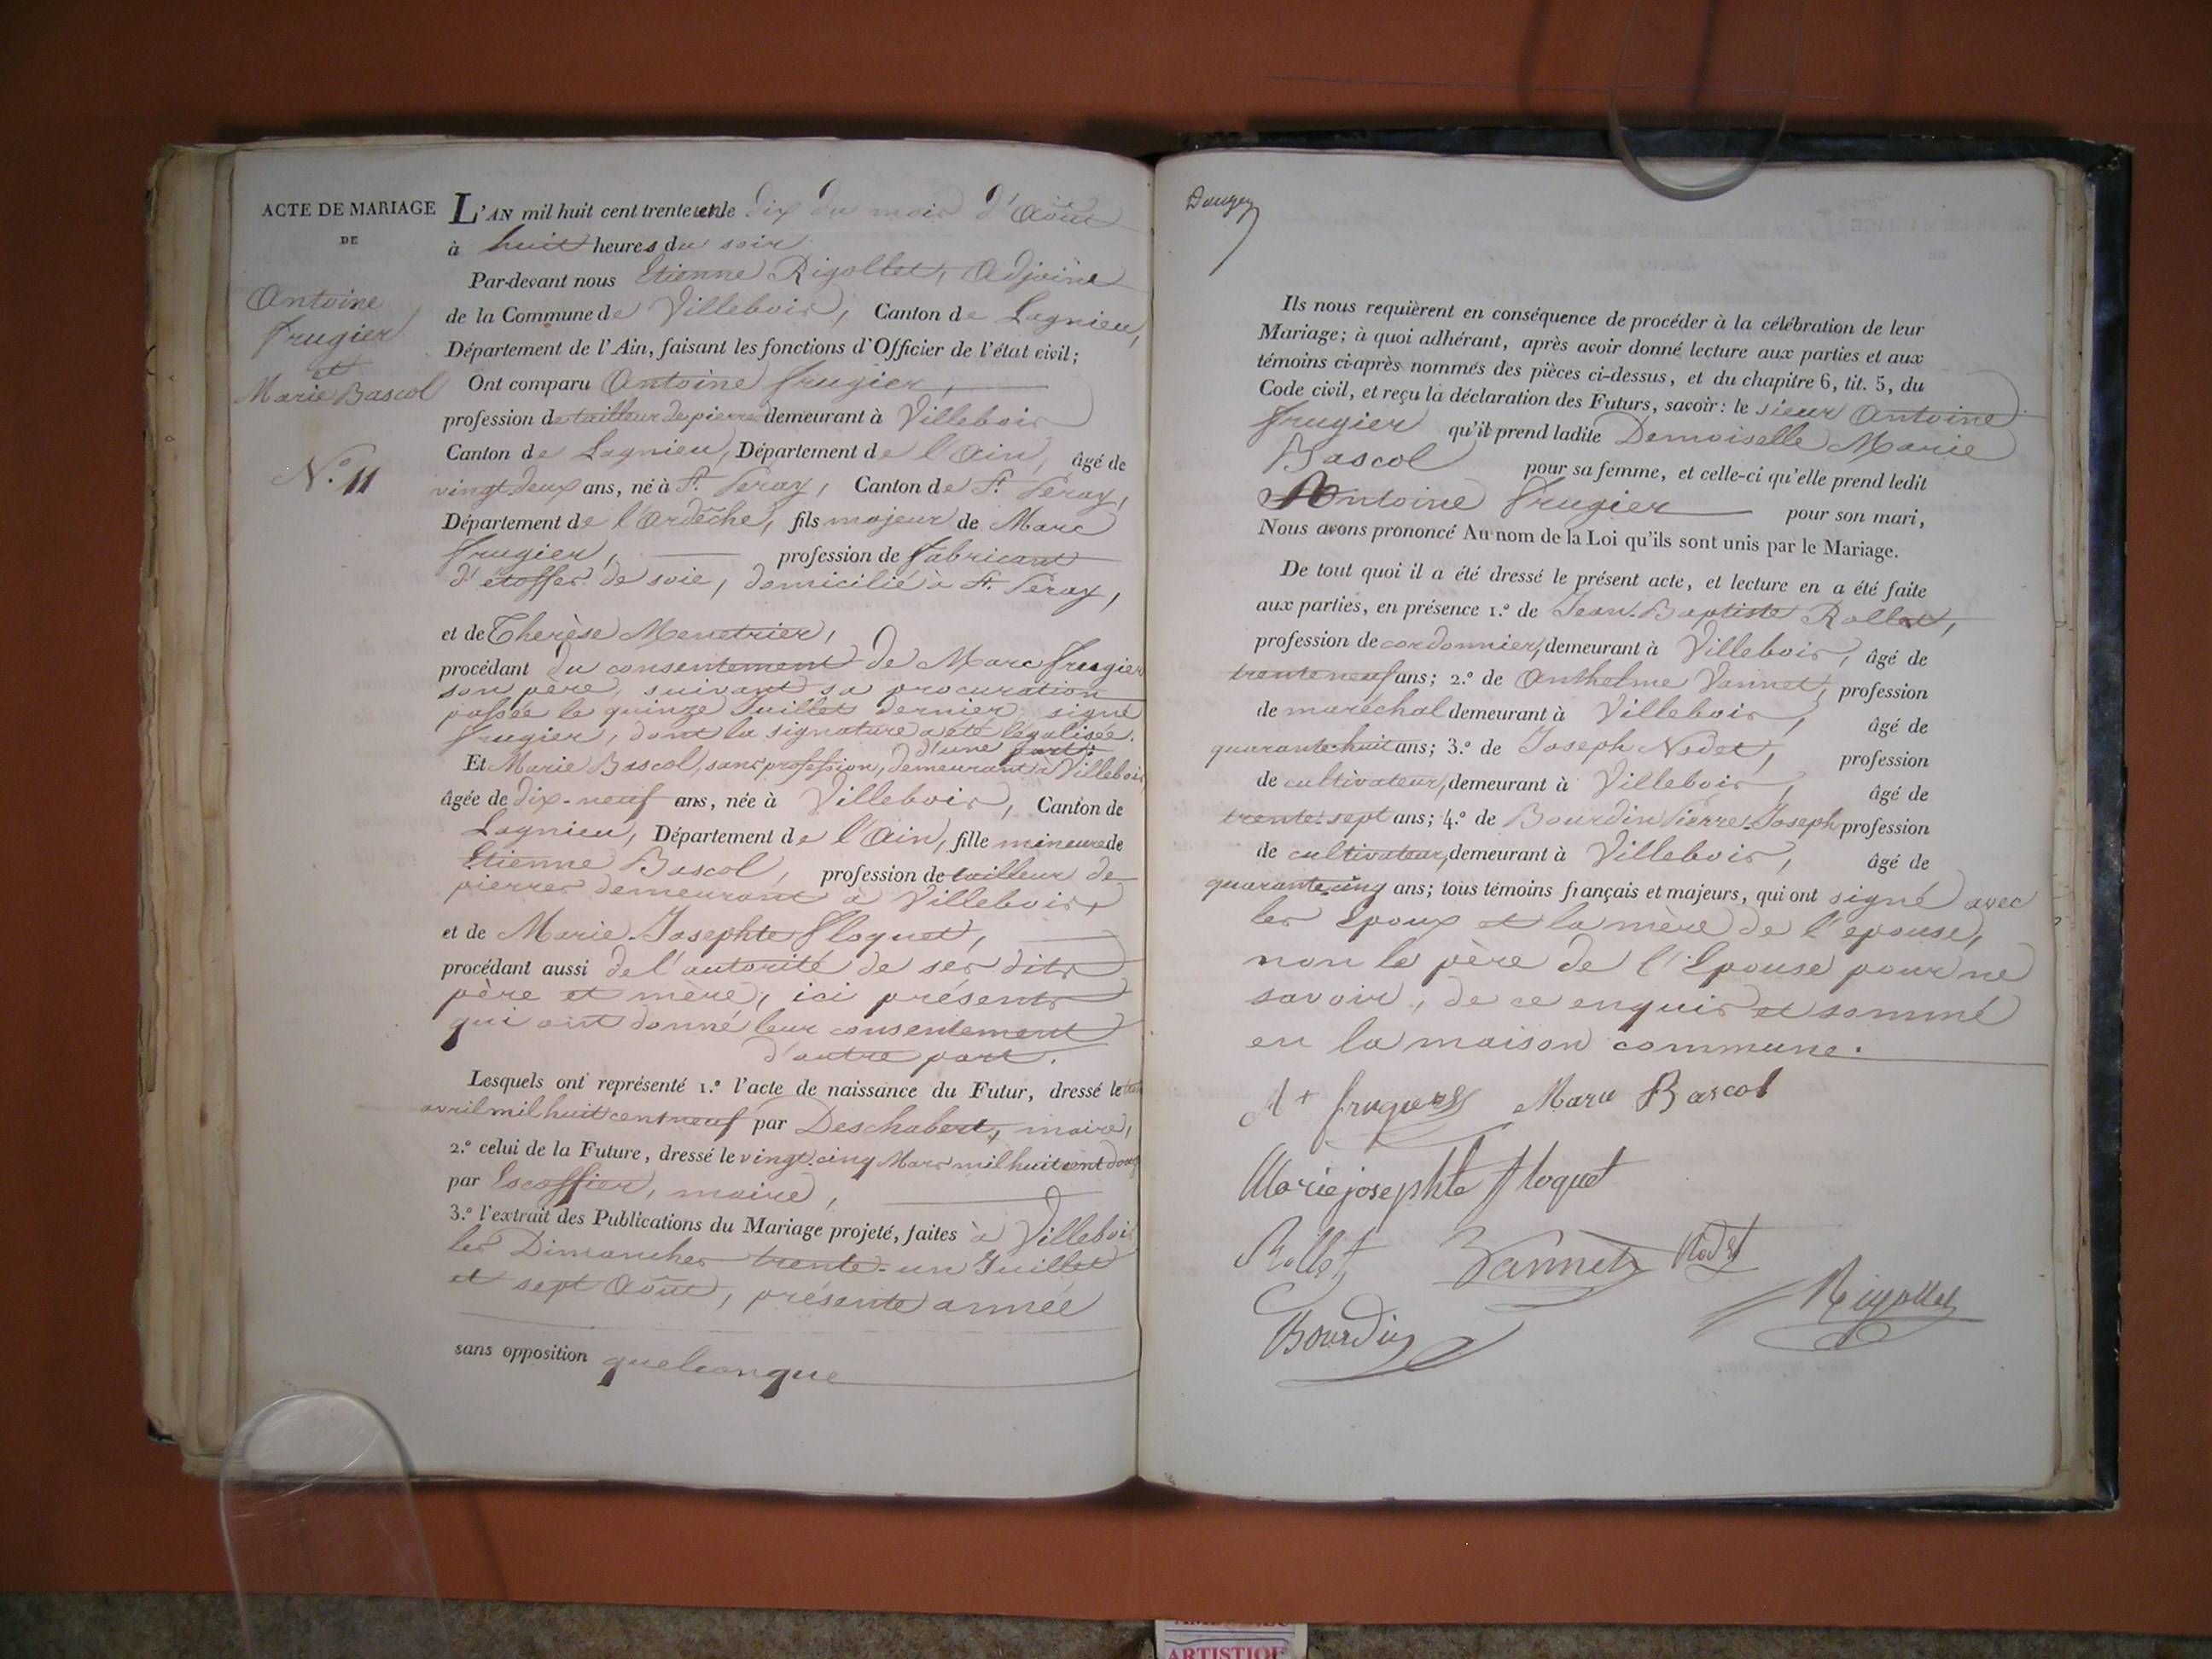 ACTE DE MARIAGE
DE
Antoine
frugier
et
Marie Bascol
N.º 11
L'AN mil huit cent trente un le dix du mois d'Août
à huit heures du soir
Par-devant nous Etienne Rigollet, Adjoint
de la Commune de Villebois, Canton de Lagnieu,
Département de l'Ain, faisant les fonctions d'Officier de l'état civil;
Ont comparu Antoine frugier,
profession de tailleur de pierre demeurant à Villebois
Canton de Lagnieu, Département de l'Ain, âgé de
vingt-deux ans, né à St. Peray, Canton de St. Peray,
Département de l'Ardèche, fils majeur de Marc
frugier, profession de fabricant
d'etoffes de soie, domicilié à St. Peray,
et de Therèse Menetrier,
procédant du consentement de Marc frugier
son père, suivant sa procuration
passée le quinze Juillet dernier, signé
frugier, dont la signature a été légalisée.
d'une part.
Et Marie Bascol, sans profession, demeurant à Villebois
âgée de dix-neuf ans, née à Villebois, Canton de
Lagnieu, Département de l'Ain, fille mineure de
Etienne Bascol, profession de tailleur de
pierres demeurant à Villebois,
et de Marie-Josephte floquet,
procédant aussi de l'autorité de ses dits
père et mère, ici présents
qui ont donné leur consentement
d'autre part.
Lesquels ont représenté 1.º l'acte de naissance du Futur, dressé le
avril mil huit cent neuf par Deschabert, maire,
2.º celui de la Future, dressé le vingt-cinq Mars mil huit cent douze
par Escoffier, maire,
3.º l'extrait des Publications du Mariage projeté, faites à Villebois
les Dimanches trente-un Juillet
et sept Août, présente année
sans opposition quelconque
Dougey
Ils nous requièrent en conséquence de procéder à la célébration de leur
Mariage; à quoi adhérant, après avoir donné lecture aux parties et aux
témoins ci-après nommés des pièces ci-dessus, et du chapitre 6, tit. 5, du
Code civil, et reçu la déclaration des Futurs, savoir: le sieur Antoine
frugier qu'il prend ladite Demoiselle Marie
Bascol pour sa femme, et celle-ci qu'elle prend ledit
Antoine frugier pour son mari,
Nous avons prononcé Au nom de la Loi qu'ils sont unis par le Mariage.
De tout quoi il a été dressé le présent acte, et lecture en a été faite
aux parties, en présence 1.º de Jean-Baptiste Rollet,
profession de cordonnier, demeurant à Villebois, âgé de
trente neuf ans; 2.º de Anthelme Vannet, profession
de maréchal demeurant à Villebois, âgé de
quarante-huit ans; 3.º de Joseph Nodet, profession
de cultivateur, demeurant à Villebois, âgé de
trente-sept ans; 4.º de Bourdin Pierre-Joseph profession
de cultivateur, demeurant à Villebois, âgé de
quarante-cinq ans; tous témoins français et majeurs, qui ont signé avec
les Epoux et la mère de l'epouse,
non le père de l'Epouse pour ne
savoir, de ce enquis et sommé
en la maison commune.
At frugier Marie Bascol
Marie josephte floquet
Rollet Vannet Nodet
Rigollet
Bourdin
ARTISTIQUE